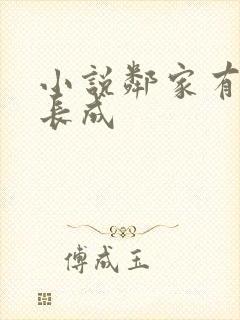 小說鄰家有
長成
傅成玉